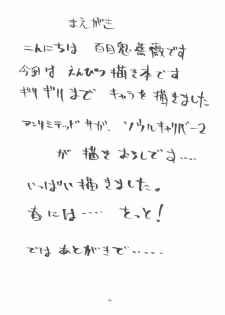 まえがき
こんにちは 百目鬼薔薇です
今回は えんぴつ描き本です
ギリギリまで キャラを描きました
アンリミテッドサガ、ソウルキャリバー2
が 描きおろしです‥‥
いっぱい描きました。
春には‥‥ もっと!
では あとがきで‥‥‥